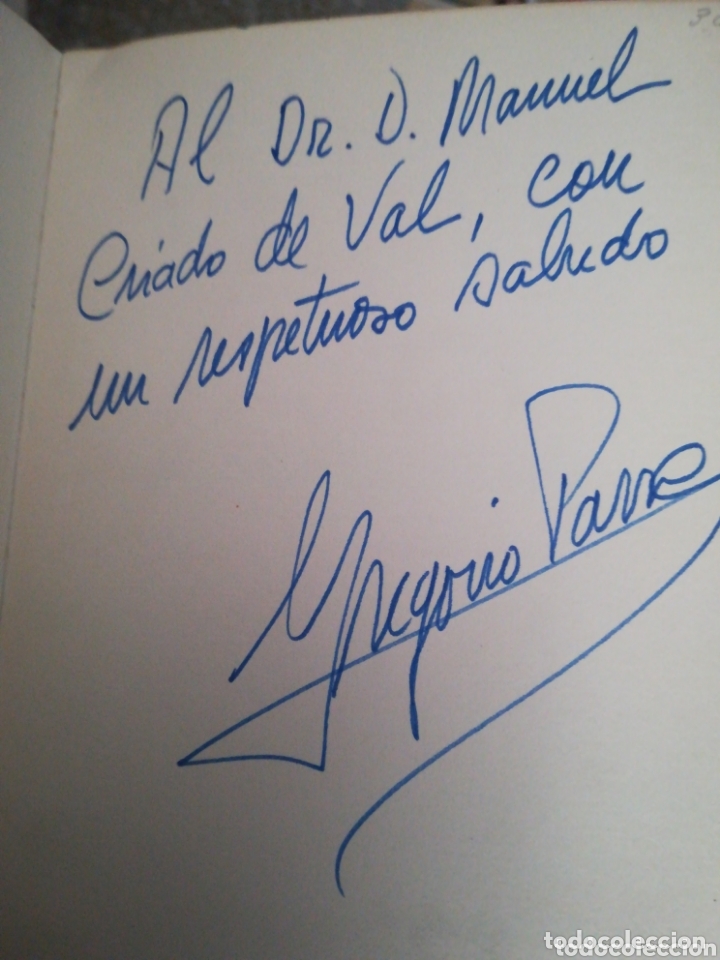 Al Dr. D. Manuel
Criado de Val, con
un respetuoso saludo
Gregorio Parra
todocoleccion
todocoleccion